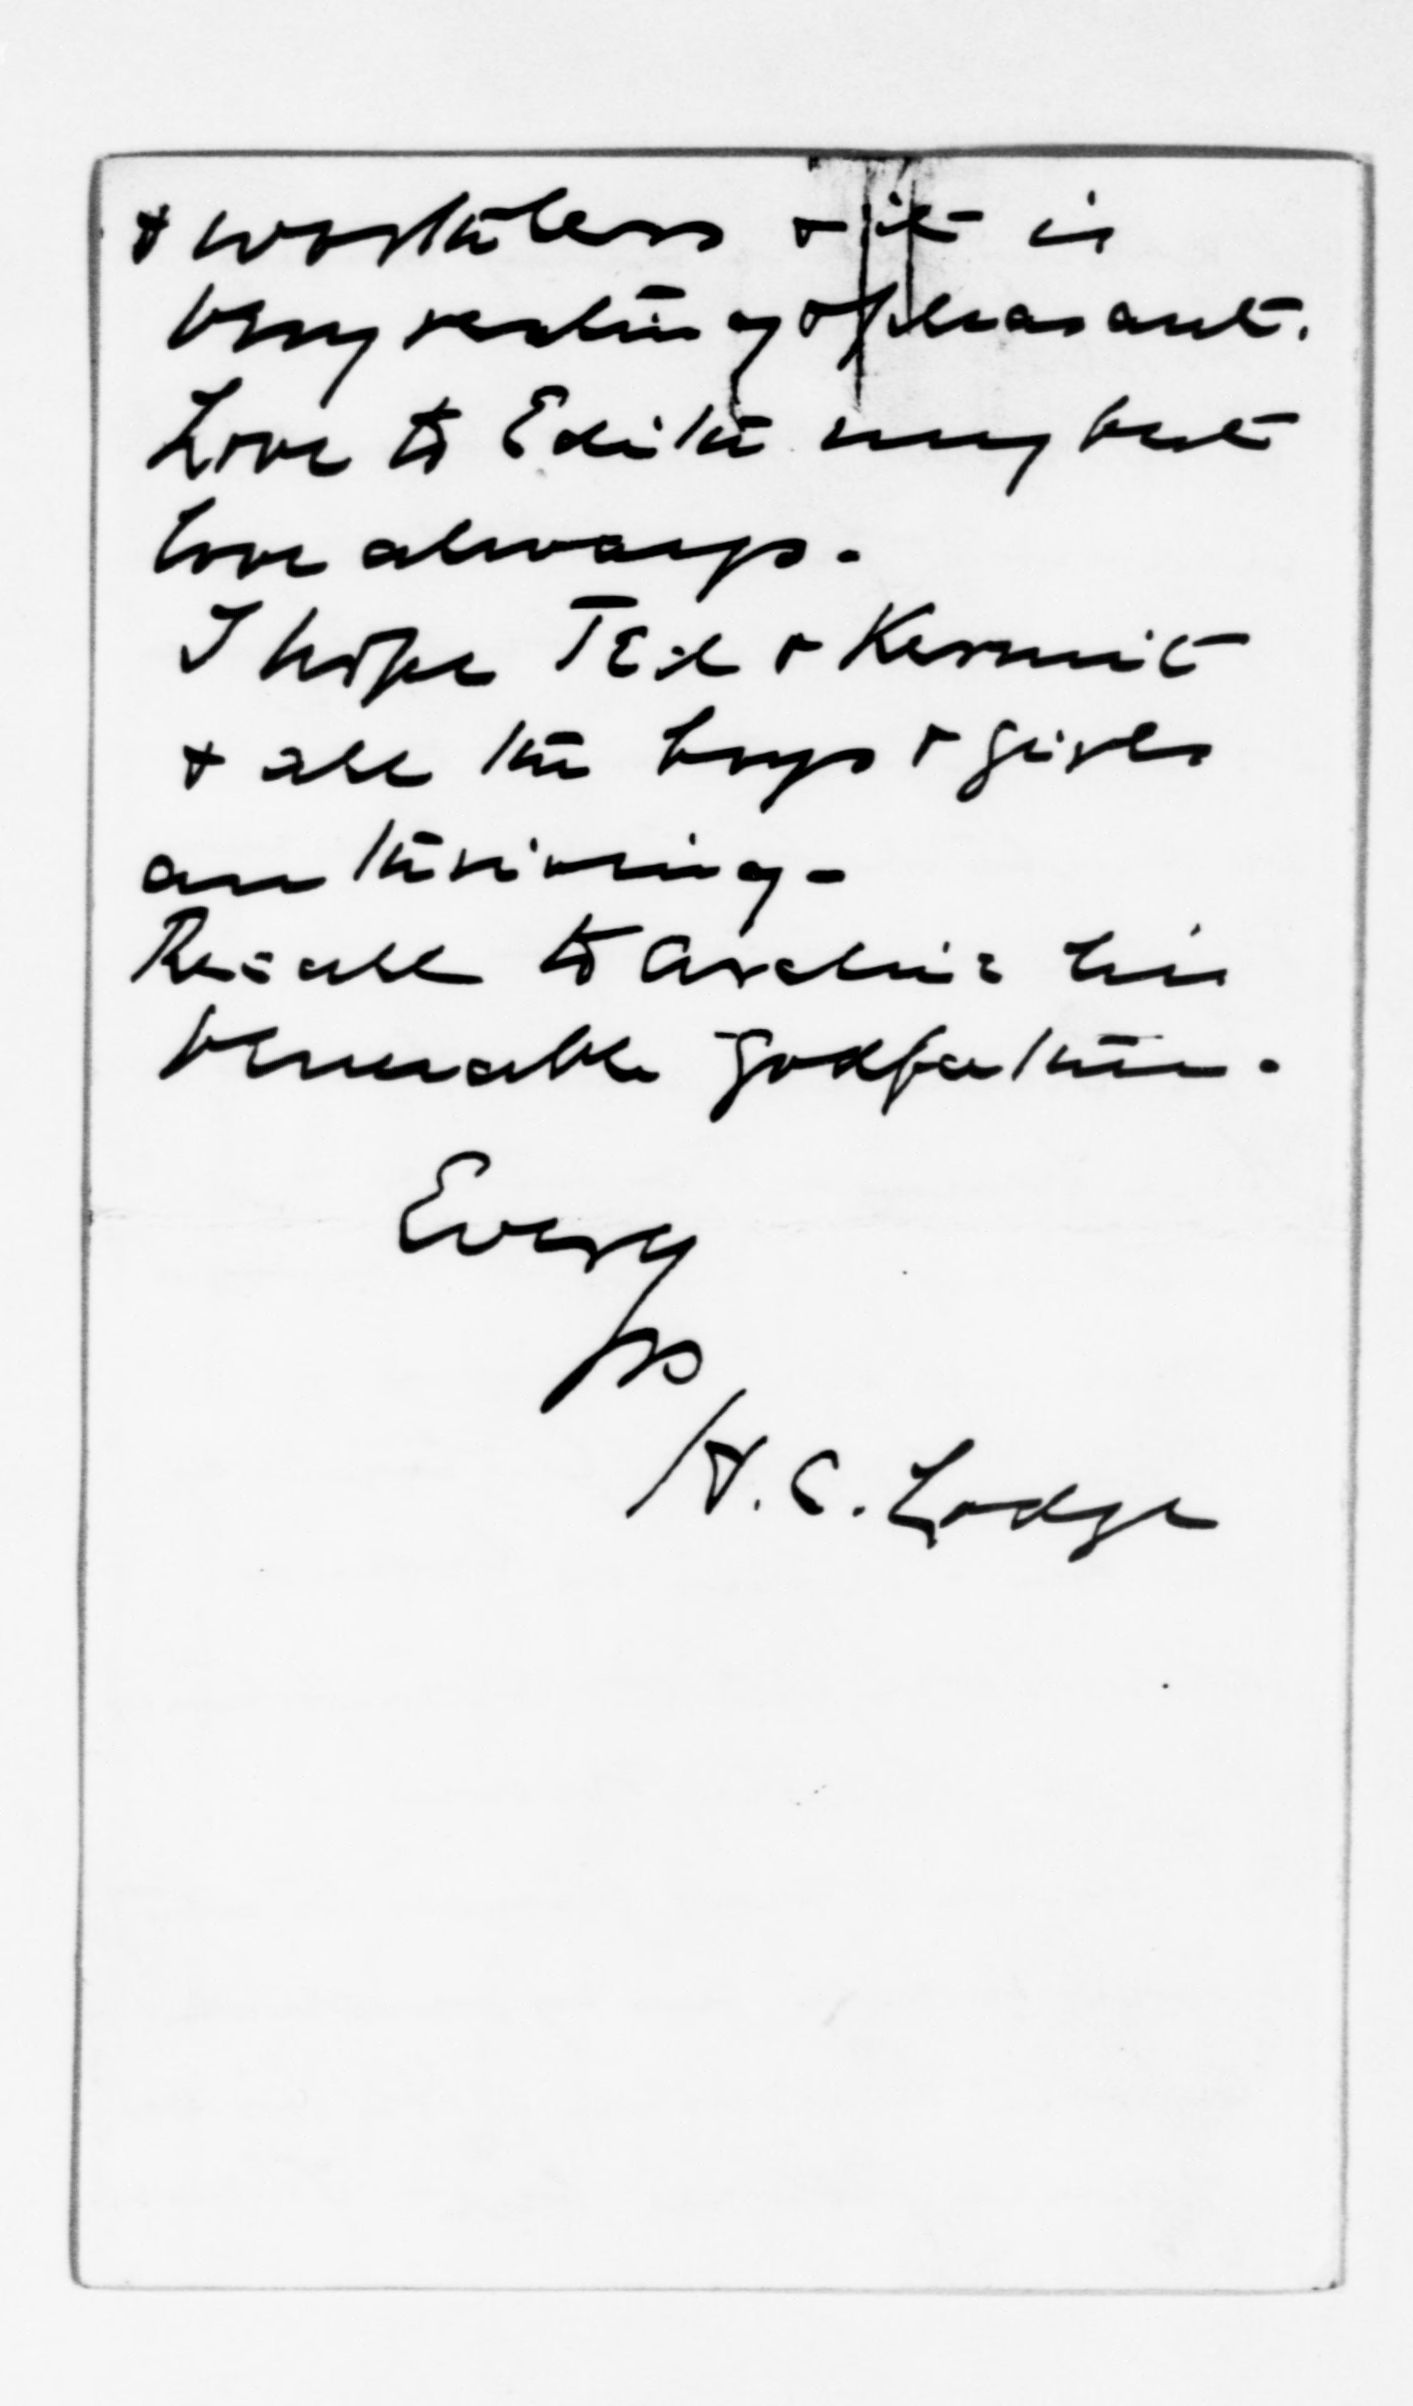 & worthless & it is
very resting & pleasant.
Love to Edith my best
love always.
I hope Ted & Kermit
& all the boys & girls
are thriving -
Recall to Archie his
venerable godfather.
Ever
yrs
H. C. Lodge